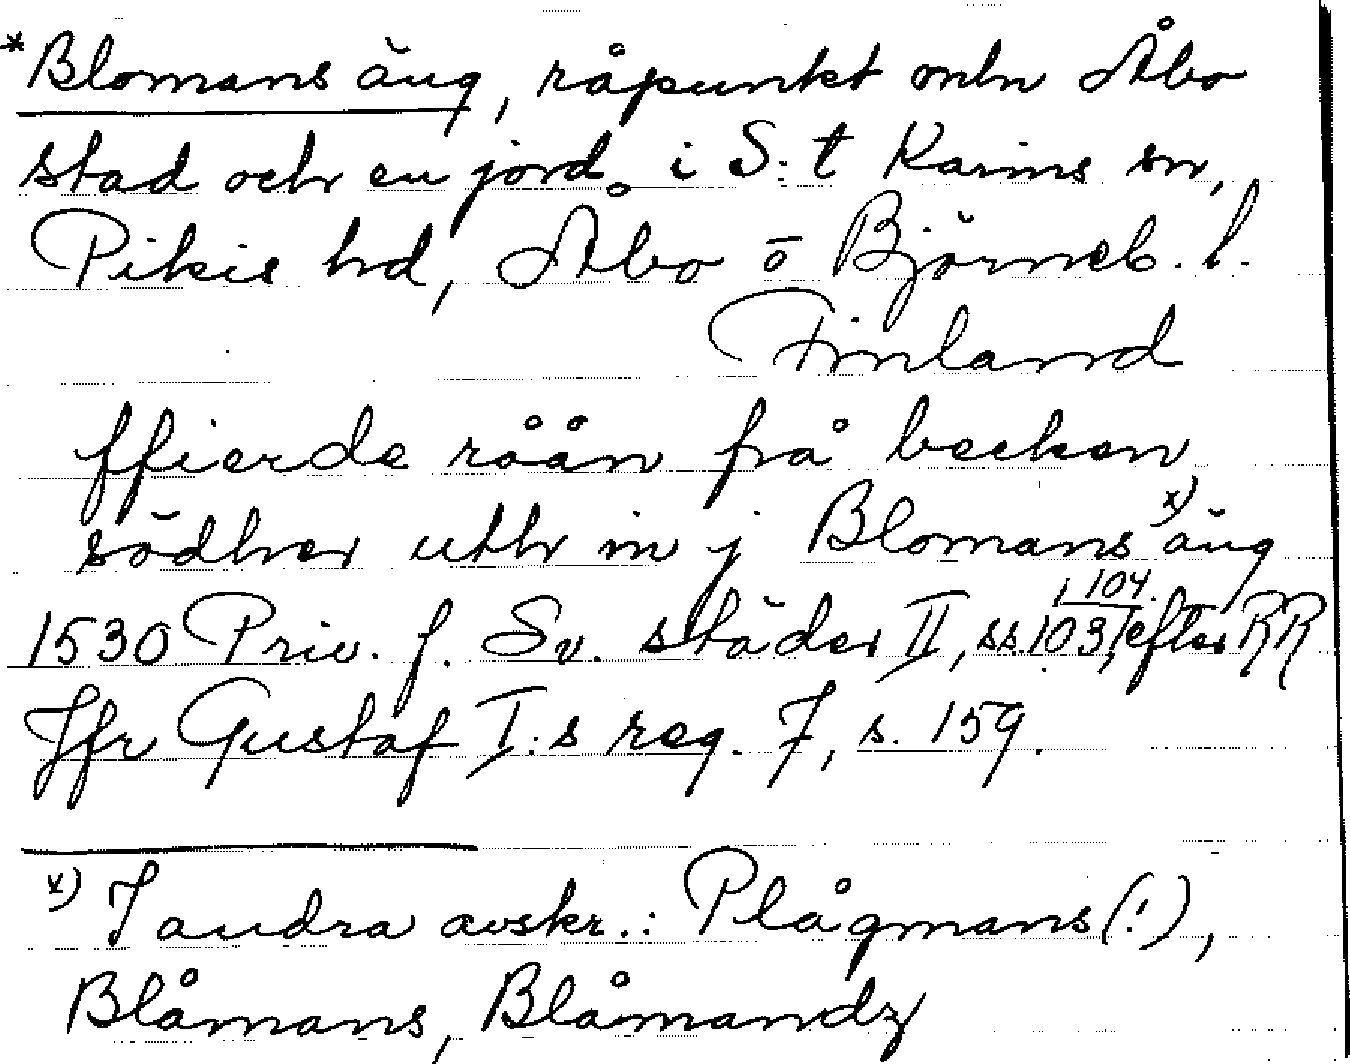 *Blomans äng, råpunkt mln Åbo
stad och en jord i S:t Karins sn,
Pikie hd, Åbo o Björneb. l.
Finland
ffierde råån frå becken
södher uthr in j Blomans x) äng
1530 Priv. f. Sv. städer II, ss. 103, 104. efter RR
Jfr Gustaf I:s reg. 7, s. 159.
x) I andra avskr.: Plågmans (!),
Blåmans, Blåmandz